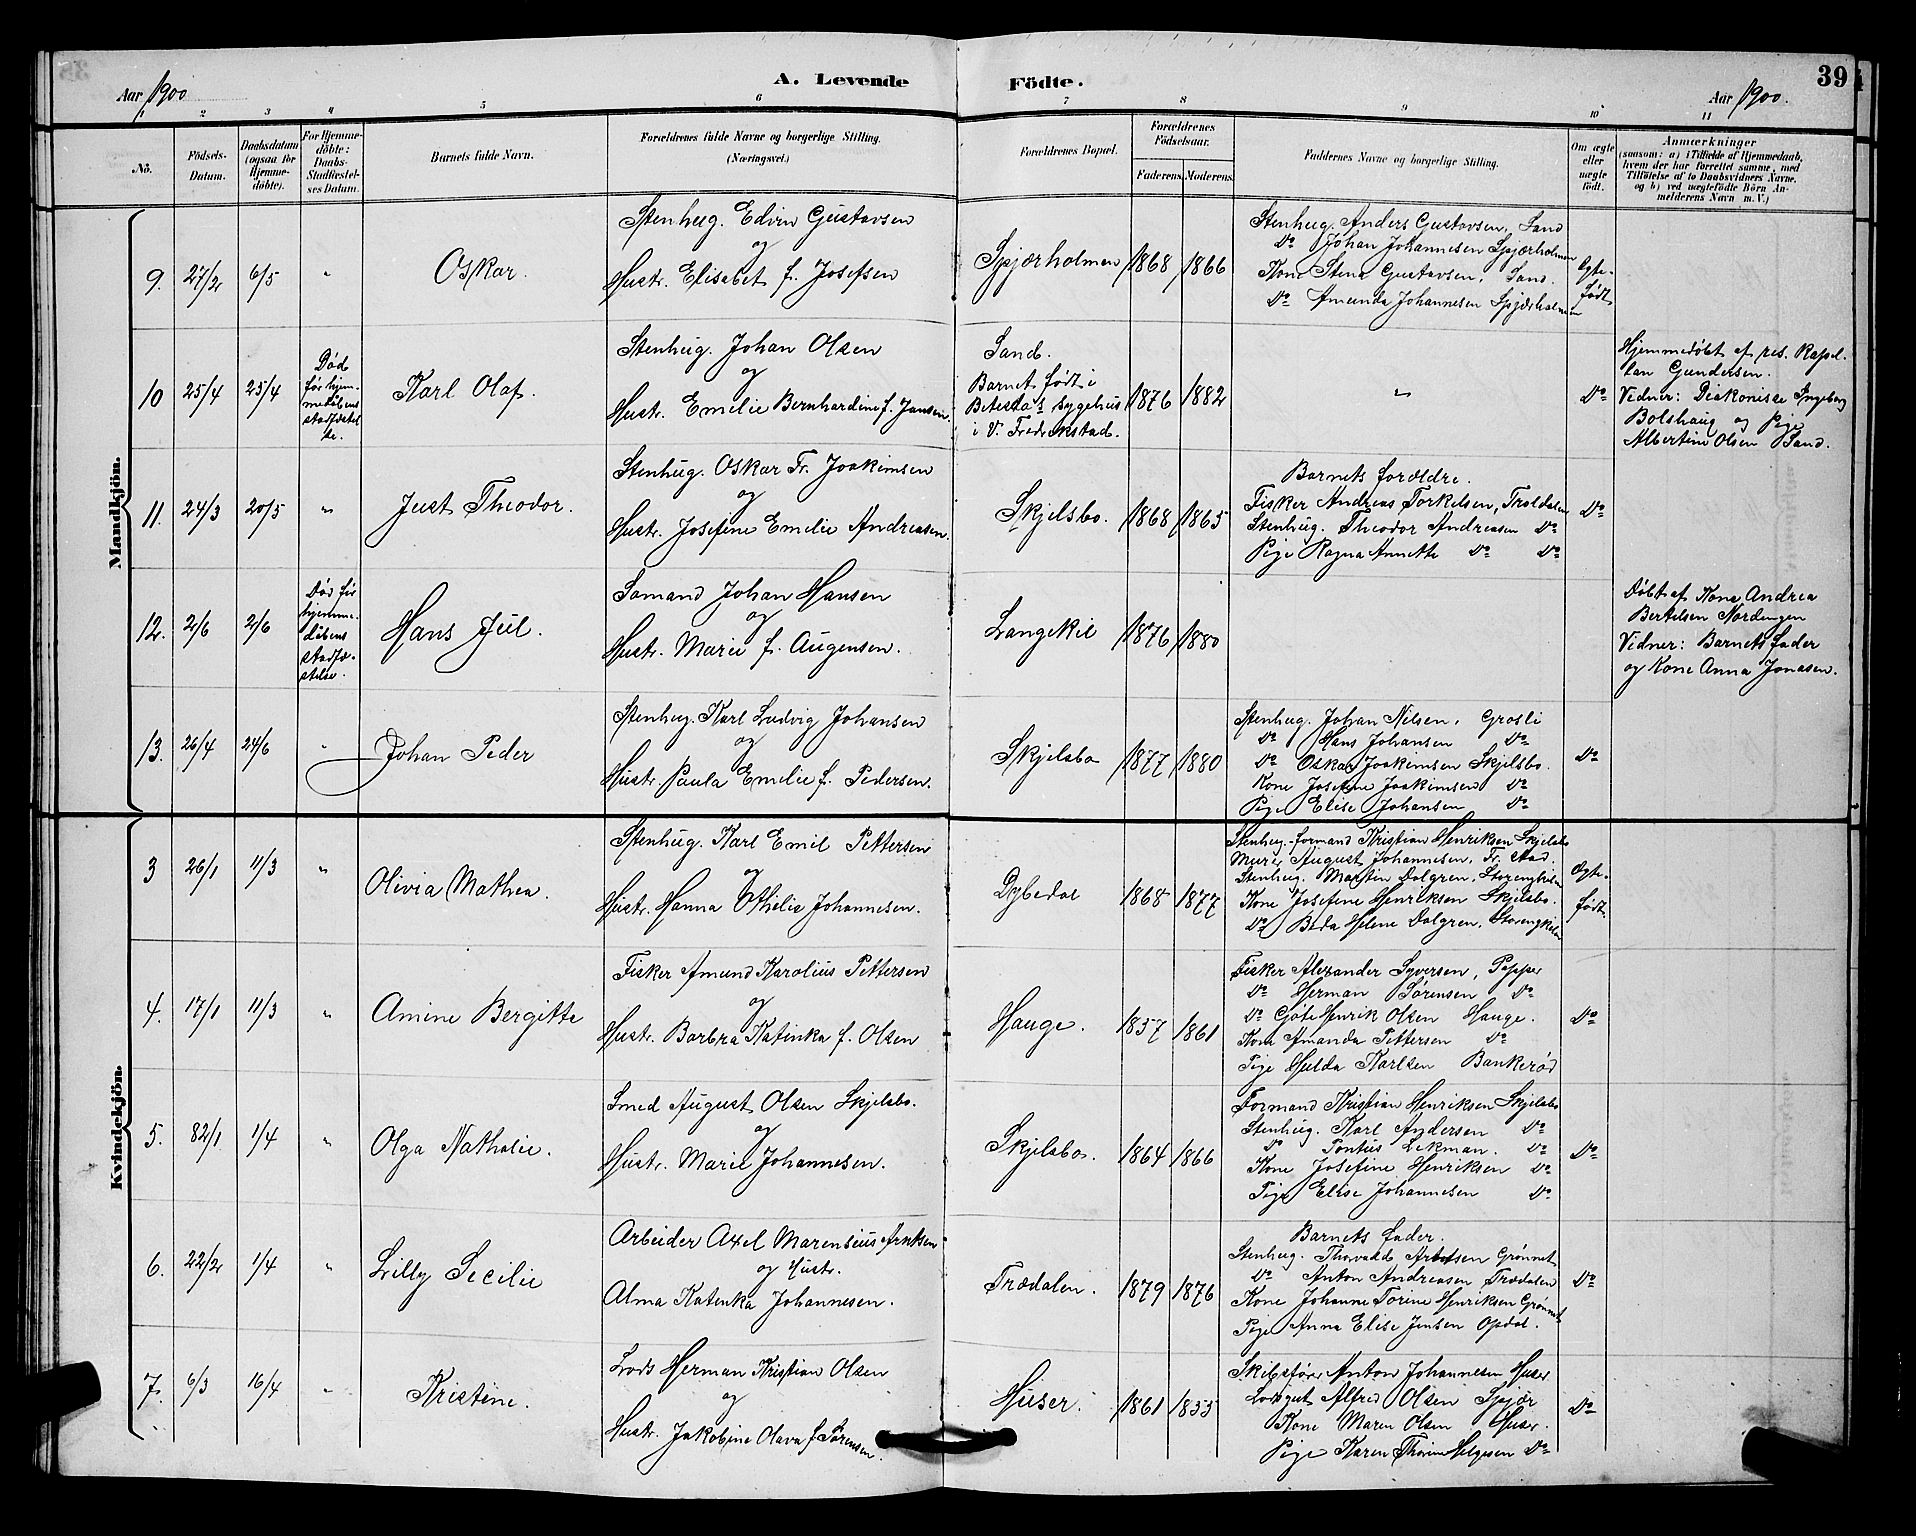 A. Levende Födte.
39
Aar 1900
Aar 1900.
1 2 3 4 5 6 7 8 9 10 11
No.
Födsels-Datum.
Daabsdatum (ogsaa for Hjemme-döbte).
For Hjemme-döbte: Daabs-Stadfæstel-ses Datum.
Barnets fulde Navn.
Forældrenes fulde Navne og borgerlige Stilling. (Næringsvei.)
Forældrenes Bopæl.
Forældrenes Födselsaar.
Faderens. Moderens.
Faddernes Navne og borgerlige Stilling.
Om ægte eller uægte födt.
Anmærkninger
(saasom: a) i Tilfælde af Hjemmedaab,
hvem der har forrettet samme, med
Tilföielse af to Daabsvidners Navne.
og b) ved uægtefödte Börn An-
melderens Navn m. V.)
Mandkjön.
9. 27/2 6/5 " Oskar.
Stenhug. Edvin Gustavsen
og
Hustr. Elisabet f. Josefsen
Spjærholmen 1868 1866
Stenhug. Anders Gustavsen, Sand
Do Johan Johannesen Spjærholmen
Kone Stena Gustavsen, Sand.
Do Amunda Johannesen Spjærholmen
Ægte-
født
10 25/4 25/4
Død
før hjem-
medåbens
stadfæstel-
se.
Karl Olaf.
Stenhug. Johan Olsen
og
Hustr. Emelie Bernhardine f. Jansen.
Sand.
Barnet født i
Betesda's sygehus
i V. Fredrikstad.
1876 1882
"
Do
Hjemmedøbt af res. Kapel-
lan Gundersen.
Vidner: Diakonisse Ingeborg
Bolshaug og Pige
Albertine Olsen Sand.
11. 24/3 20/5 " Just Theodor.
Stenhug. Oskar Fr. Joakimsen
og
Hustr. Josefine Emelie Andreasen.
Skjelsbo. 1868 1865
Barnets forældre.
Fisker Andreas Torkelsen, Troldalen
Stenhug. Theodor Andreasen Do
Pige Ragna Annette Do Do
Do
12. 2/6 2/6
Død før
hjemme-
dåbens
stadfæ-
stelse.
Hans Jul.
Sømand Johan Hansen
og
Hustr. Marie f. Augensen.
Langekil 1876 1880
Døbt af Kone Andrea
Bertelsen Nordengen
Vidner: Barnets fader
og Kone Anna Jonasen.
13. 26/4 24/6 " Johan Peder
Stenhug. Karl Ludvig Johansen
og
Hustr. Paula Emelie f. Pedersen.
Skjelsbo 1877 1880
Stenhug. Johan Nilsen, Grosli
Do Hans Johansen Do
Do Oskar Joakimsen Skjelsbo.
Kone Josefine Joakimsen Do
Pige Elise Johansen Do
Do
Kvindekjön.
3 26/1 11/3 " Olivia Mathea.
Stenhug. Karl Emil Pettersen
og
Hustr. Hanna Othelie Johannesen.
Dybedal 1868 1877
Stenhug.-formand Kristian Henriksen Skjelsbo
Murer August Johannesen, Fr. stad.
Stenhug. Martin Dalgren, Storengkilen
Kone Josefine Henriksen Skjelsbo.
Do Beda Helene Dalgren, Storengkilen
Ægte-
født
4. 17/1 11/3 " Amine Bergitte
Fisker Amund Karolius Pettersen
og
Hustr. Barbra Katinka f. Olsen
Hauge. 1857 1861
Fisker Alexander Syversen, Papper
Do Herman Sørensen Do
Do Gøte Henrik Olsen Hauge.
Kone Amanda Pettersen Do
Pige Hulda Karlsen Bankerød
Do
5. 82/1 1/4 " Olga Nathalie.
Smed August Olsen Skjelsbo.
og
Hustr. Marie Johannesen.
Skjelsbo. 1864 1866
Formand Kristian Henriksen Skjelsbo
Stenhug. Karl Andersen Do
Do Pontus Lekman. Do
Kone Josefine Henriksen Do
Pige Elise Johannesen Do
Do
6. 22/2 1/4 " Lilly Secilie
Arbeider Axel Marensius Arntsen
og Hustr.
Alma Katinka Johannesen.
Trædalen. 1879 1876
Barnets fader.
Stenhug. Thorvald Arntsen Grønnet
Do Anton Andreasen Trædalen
Kone Johanne Torine Henriksen Grønnet
Pige Anna Elise Jensen Opdal.
Do
7. 6/3 16/4 " Kristine.
Lods Herman Kristian Olsen
og
Hustr. Jakobine Olava f. Sørensen.
Huser. 1861 1855
Skibsfører Anton Johannesen Huser
Lodsgut Alfred Olsen Spjær
Kone Maren Olsen Huser.
Pige Karen Thorine Helgesen Do
Do